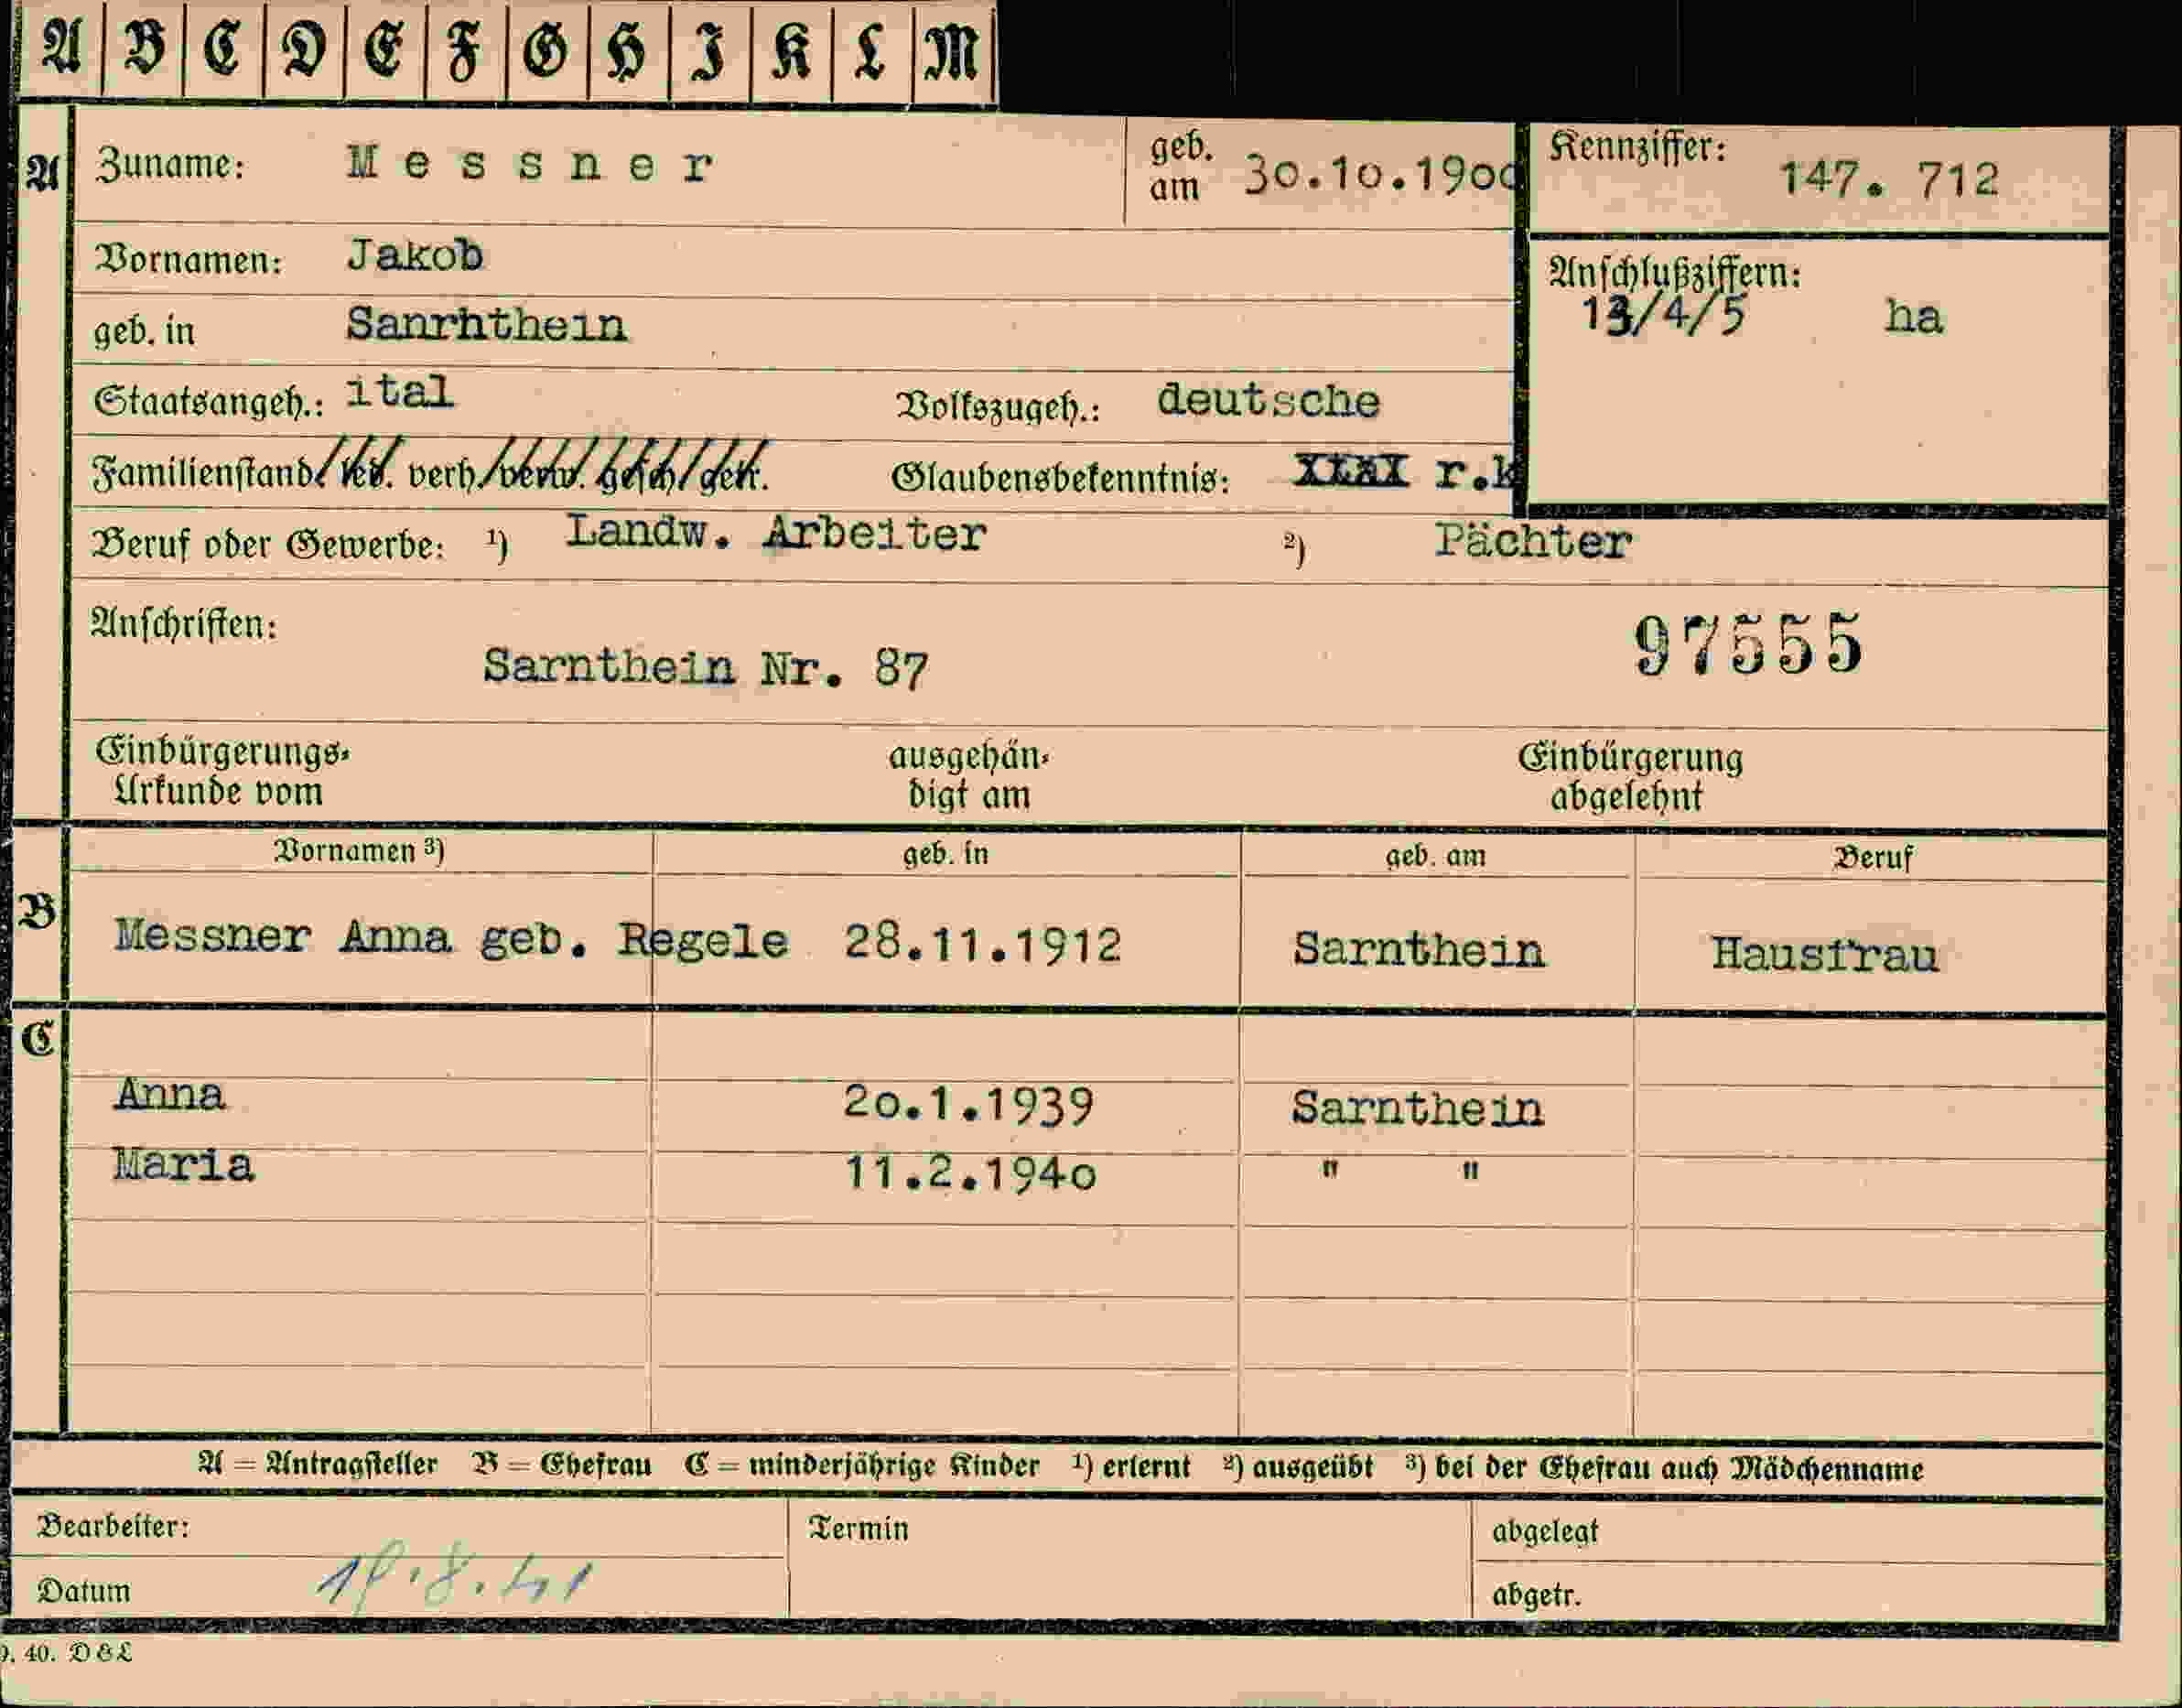 A B C D E F G H I K L M
A Zuname: Messner geb. am 30.10.1900 Kennziffer: 147. 712
Vornamen: Jakob
Anschlußziffern:
13/4/5 ha
geb. in Sanrhthein
Staatsangeh.: ital Volkszugeh.: deutsche
Familienstand: led. verh. verw. gesch. getr. Glaubensbekenntnis: r.k
Beruf oder Gewerbe: ¹) Landw. Arbeiter ²) Pächter
Anschriften:
Sarnthein Nr. 87 97555
Einbürgerungs-Urkunde vom ausgehändigt am Einbürgerung abgelehnt
Vornamen ³) geb. in geb. am Beruf
B Messner Anna geb. Regele 28.11.1912 Sarnthein Hausfrau
C
Anna 20.1.1939 Sarnthein
Maria 11.2.1940 " "
A = Antragsteller B = Ehefrau C = minderjährige Kinder ¹) erlernt ²) ausgeübt ³) bei der Ehefrau auch Mädchenname
Bearbeiter: Termin abgelegt
Datum abgetr.
40. D & L